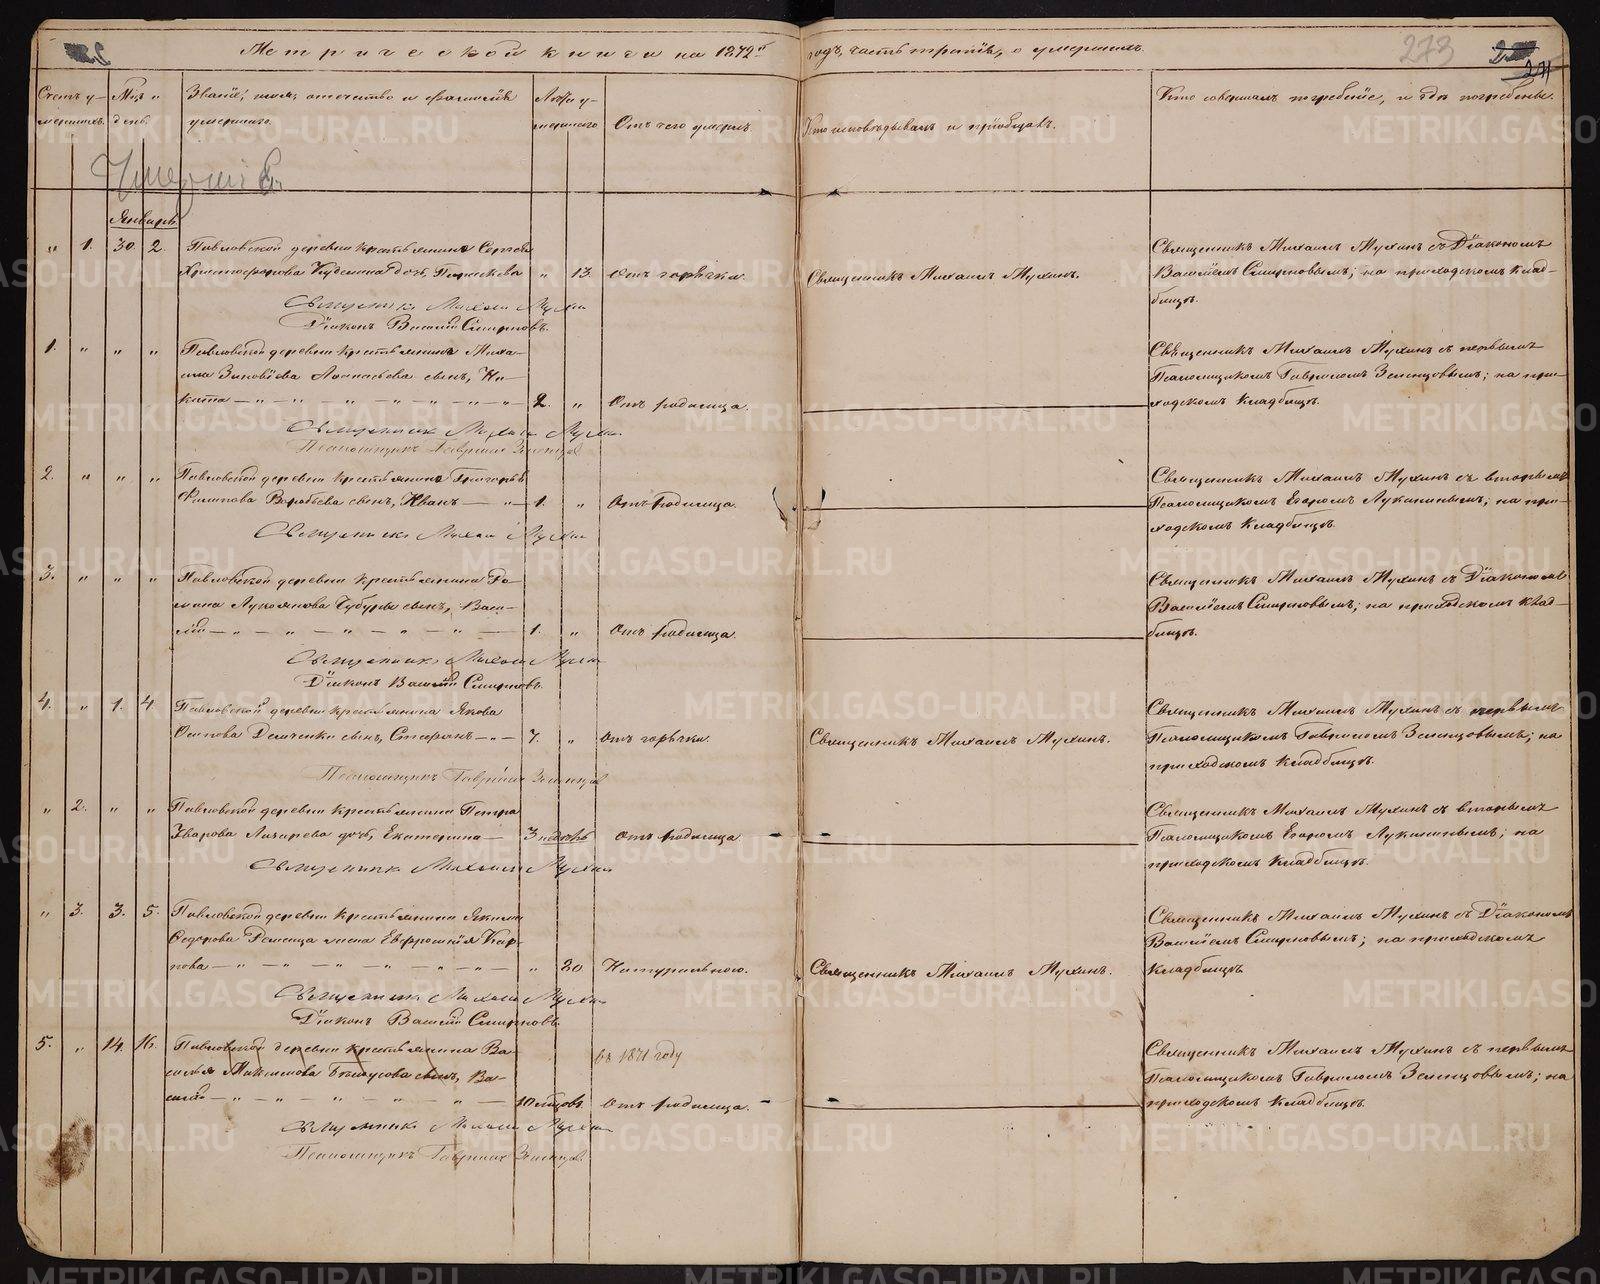 Метрической книги на 1872й годъ, часть третія, о умершихъ.
273
271
Счетъ умершихъ.
Мѣц. и день.
Званіе, имя, отчество и фамилія умершаго.
Лѣта умершаго
Отъ чего умеръ.
Кто исповѣдывалъ и пріобщалъ.
Кто совершалъ погребеніе, и гдѣ погребены.
Январь
" 1. 30. 2. Павловской деревни крестьянина Сергея
Христофорова дочь, " 13. Отъ горячки.
Священникъ Михаилъ Мухинъ.
Священникъ Михаилъ Мухинъ съ Діакономъ
Василіемъ Смирновымъ; на приходскомъ клад-
бищѣ.
Священникъ Михаилъ Мухин
Діаконъ Василій Смирновъ.
1. " " " Павловской деревни крестьянина Миха-
ила Зиновіева сынъ, Ни-
кита — " — " — " — 2. " Отъ родимца.
Священникъ Михаилъ Мухинъ съ первымъ
Псаломщикомъ Гавріиломъ Зеленцовымъ; на при-
ходскомъ кладбищѣ.
Священникъ Михаилъ Мухин
Псаломщикъ Гавріилъ Зеленцов
2. " " " Павловской деревни крестьянина Григорья
Филипова Воробьева сынъ, Иванъ — " — 1. " Отъ родимца.
Священникъ Михаилъ Мухинъ съ вторымъ
Псаломщикомъ Егоромъ Лукинымъ; на при-
ходскомъ кладбищѣ.
Священникъ Михаилъ Мухин
3. " " " Павловской деревни крестьянина Ро-
мана Лукоянова сынъ, Васи-
лій — " — " — " — 1. " Отъ родимца.
Священникъ Михаилъ Мухинъ съ Діакономъ
Василіемъ Смирновымъ; на приходскомъ клад-
бищѣ.
Священникъ Михаилъ Мухин
Діаконъ Василій Смирновъ.
4. " 1. 4. Павловской деревни крестьянина Якова
Осипова Демченки сынъ, Стефанъ — " — 7. " Отъ горячки.
Священникъ Михаилъ Мухинъ.
Священникъ Михаилъ Мухинъ съ первымъ
Псаломщикомъ Гавріиломъ Зеленцовымъ; на
приходскомъ кладбищѣ.
Псаломщикъ Гавріилъ Зеленцов
" 2. " " Павловской деревни крестьянина Петра
дочь, Екатерина — 3 недѣль Отъ родимца
Священникъ Михаилъ Мухинъ съ вторымъ
Псаломщикомъ Егоромъ Лукинымъ; на
приходскомъ кладбищѣ.
Священникъ Михаилъ Мухин
" 3. 3. 5. Павловской деревни крестьянина Якима
Федорова жена Евфросинія Кар-
пова — " — " — " — " 30 Натуральною.
Священникъ Михаилъ Мухинъ.
Священникъ Михаилъ Мухинъ съ Діакономъ
Василіемъ Смирновымъ; на приходскомъ
кладбищѣ
Священникъ Михаилъ Мухин
Діаконъ Василій Смирновъ.
5. " 14. 16. Павловской деревни крестьянина Ва-
силья Максимова Бѣлоусова сынъ, Ва-
силій — " — " — " — 10 мѣсцовъ. Отъ родимца.
въ 1871 году
Священникъ Михаилъ Мухинъ съ первымъ
Псаломщикомъ Гавріиломъ Зеленцовымъ; на
приходскомъ кладбищѣ.
Священникъ Михаилъ Мухин
Псаломщикъ Гавріилъ Зеленцов.
METRIKI.GASO-URAL.RU